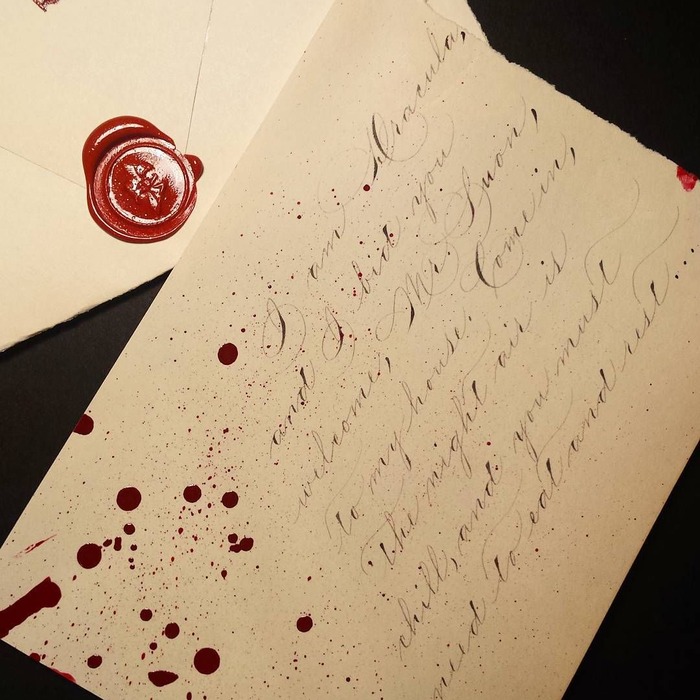 I am Dracula,
and I bid you
welcome, Mr.
to my house. Come in,
the night air is
chill, and you must
need to eat and rest...